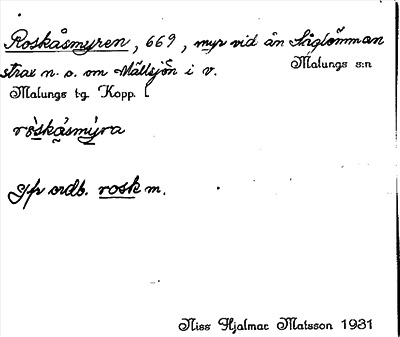 Roskåsmyren, 669, myr vid ån Låglömman
strax n. o. om Mällsjön i v. Malungs s:n
Malungs tg. Kopp. l
ròskåsmỳra
Jfr ordb. rosk m.
Niss Hjalmar Matsson 1931